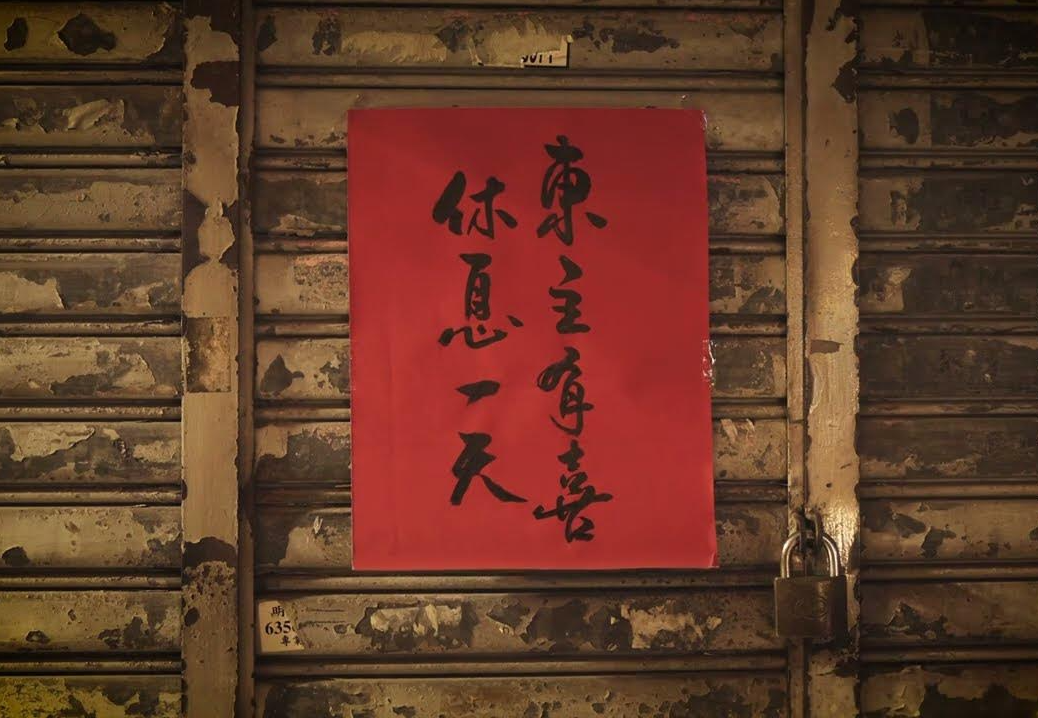 東主有喜
休息一天
明
635
專